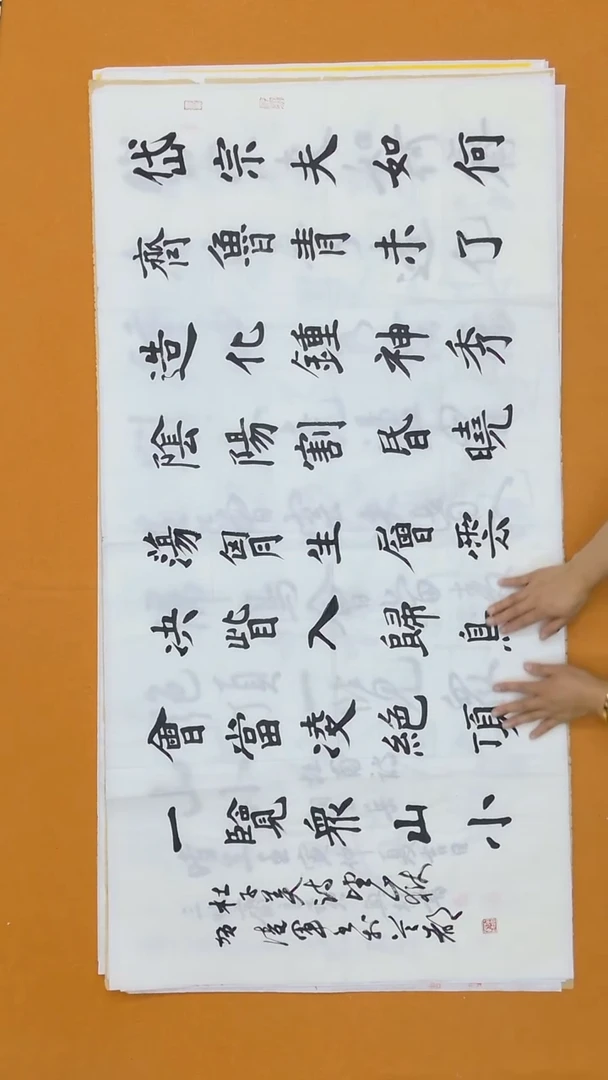 岱宗夫如何
齊魯青未了
造化鍾神秀
陰陽割昏曉
蕩胷生層雲
決眥入歸鳥
會當凌絕頂
一覽衆山小
杜子美詩望嶽